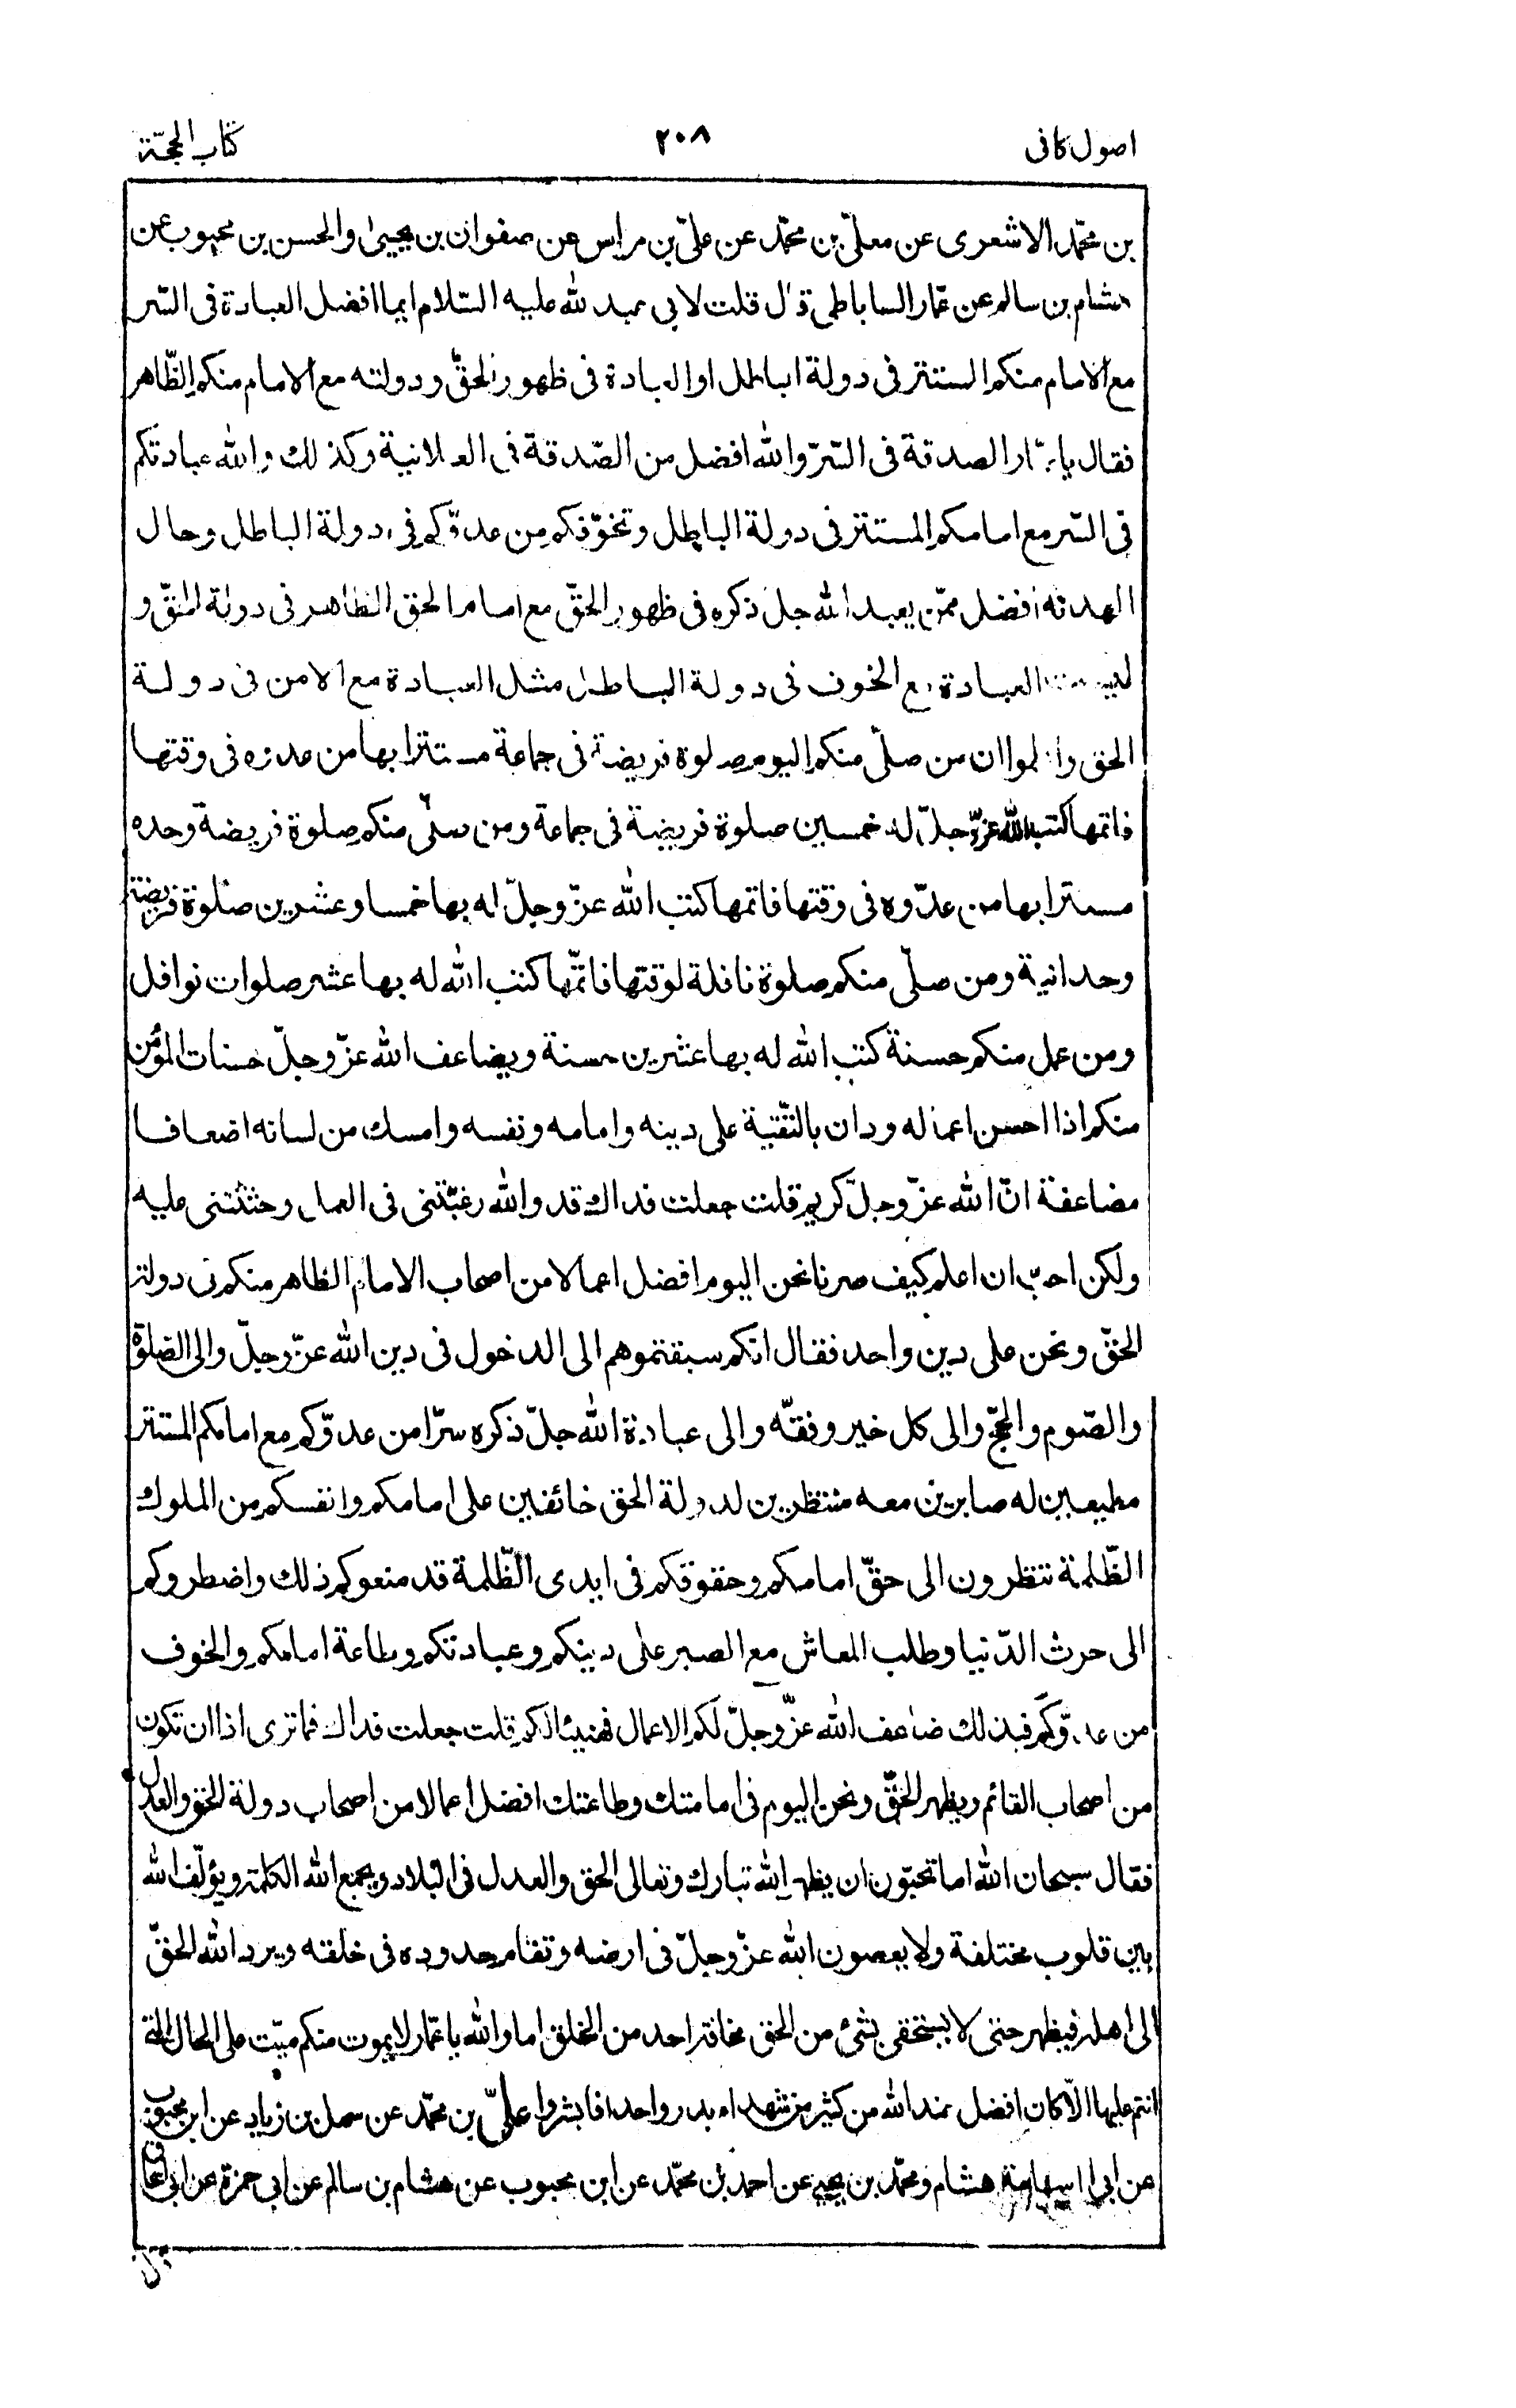 اصول كافى ٢٠٨ كتاب الحجّة
بن محمّد الاشعرى عن معلّى بن محمّد عن علىّ بن مرداس عن صفوان بن يحيى والحسن بن محبوب عن
هشام بن سالم عن عمّار الساباطى قال قلت لابى عبد الله عليه السّلام ايما افضل العبادة فى السّر
مع الامام منكم المستتر فى دولة الباطل او العبادة فى ظهور الحقّ ودولته مع الامام منكم الظّاهر
فقال يا عمّار الصدقة فى السّرّ والله افضل من الصّدقة فى العلانية وكذلك والله عبادتكم
فى السّر مع امامكم المستتر فى دولة الباطل وتخوّفكم من عدوّكم فى دولة الباطل وحال
الهدنة افضل ممّن يعبد الله جل ذكره فى ظهور الحقّ مع امام الحق الظاهر فى دولة الحقّ و
ليست العبادة مع الخوف فى دولة الباطل مثل العبادة مع الامن فى دولة
الحق واعلموا ان من صلّى منكم اليوم صلوة فريضة فى جماعة مستترا بها من عدوّه فى وقتها
فاتمها كتب الله عزّ وجلّ له خمسين صلوة فريضة فى جماعة ومن صلّى منكم صلوة فريضة وحده
مستترا بها من عدّوه فى وقتها فاتمها كتب الله عزّ وجلّ له بها خمسا وعشرين صلوة فريضة
وحدانية ومن صلّى منكم صلوة نافلة لوقتها فاتمّها كتب الله له بها عشر صلوات نوافل
ومن عمل منكم حسنة كتب الله له بها عشرين حسنة ويضاعف الله عزّ وجلّ حسنات المؤمن
منكم اذا احسن اعماله ودان بالتّقيّة على دينه وامامه ونفسه وامسك من لسانه اضعافا
مضاعفة انّ الله عزّ وجلّ كريم قلت جعلت فداك قد والله رغبّتنى فى العمل وحثثتنى عليه
ولكن احبّ ان اعلم كيف صرنا نحن اليوم افضل اعمالا من اصحاب الامام الظاهر منكم فى دولة
الحقّ ونحن على دين واحد فقال انّكم سبقتموهم الى الدخول فى دين الله عزّ وجلّ والى الصّلوة
والصّوم والحجّ والى كل خير وفقه والى عبادة الله جلّ ذكره سرّا من عدوّكم مع امامكم المستتر
مطيعين له صابرين معه منتظرين لدولة الحق خائفين على امامكم وانفسكم من الملوك
الظّلمة تنتظرون الى حقّ امامكم وحقوقكم فى ايدى الظّلمة قد منعوكم ذلك واضطروكم
الى حرث الدّنيا وطلب المعاش مع الصبر على دينكم وعبادتكم وطاعة امامكم والخوف
من عدوّكم فبذلك ضاعف الله عزّ وجلّ لكم الاعمال فهنيئا لكم قلت جعلت فداك فما ترى اذا ان نكون
من اصحاب القائم ويظهر الحقّ ونحن اليوم فى امامتك وطاعتك افضل اعمالا من اصحاب دولة الحق والعدل
فقال سبحان الله اما تحبّون ان يظهر الله تبارك وتعالى الحق والعدل فى البلاد ويجمع الله الكلمة ويؤلّف الله
بين قلوب مختلفة ولا يعصون الله عزّ وجلّ فى ارضه وتقام حدوده فى خلقه ويرد الله الحقّ
الى اهله فيظهر حتى لا يستخفى بشئ من الحق مخافة احد من الخلق اما والله يا عمّار لا يموت منكم ميّت على الحال التى
انتم عليها الّا كان افضل عند الله من كثير من شهداء بدر واحد فابشروا علىّ بن محمّد عن سهل بن زياد عن ابن محبوب
عن ابى اسامة هشام ومحمّد بن يحيى عن احمد بن محمّد عن ابن محبوب عن هشام بن سالم عن ابى حمزة عن ابى اسحاق